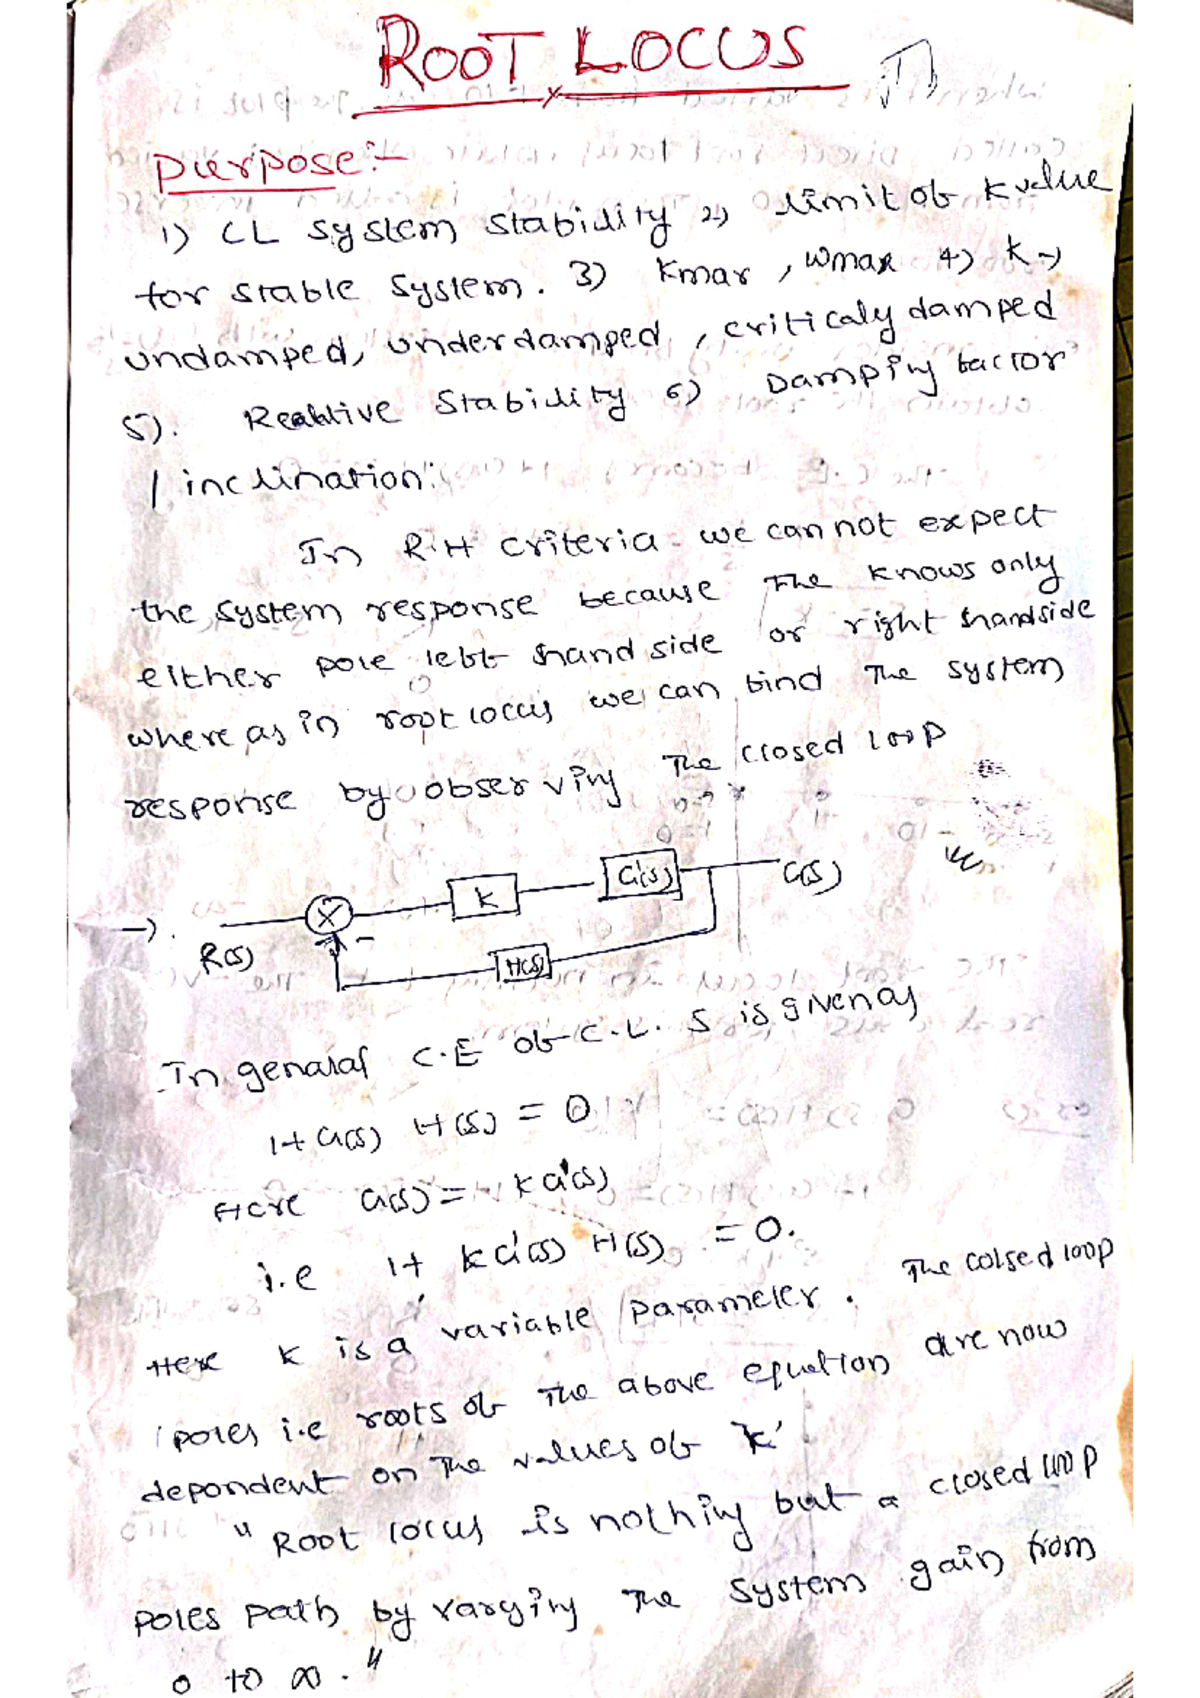 ROOT LOCUS
Purpose:-
1) CL system stability 2) limit of K value
for stable system. 3) Kmax, ωmax 4) K →
undamped, underdamped, criticaly damped
5). Realtive stability 6) Damping factor
/ inclination:
In R.H criteria we can not expect
the system response because The knows only
either pole left hand side or right handside
where as in root locus we can find The system
response by observing The closed loop
→. R(s) X - K G'(s) C(s)
H(s)
In genaral C.E of C.L. S is given as
1+ G(s) H(s) = 0
Here G(s) = K G'(s)
i.e 1+ K G'(s) H(s) = 0.
Here K is a variable parameter. The colsed loop
poles i.e roots of The above equation are now
dependent on The values of 'K'
" Root locus is nothing but a closed loop
poles path by varying The system gain from
0 to ∞ . "